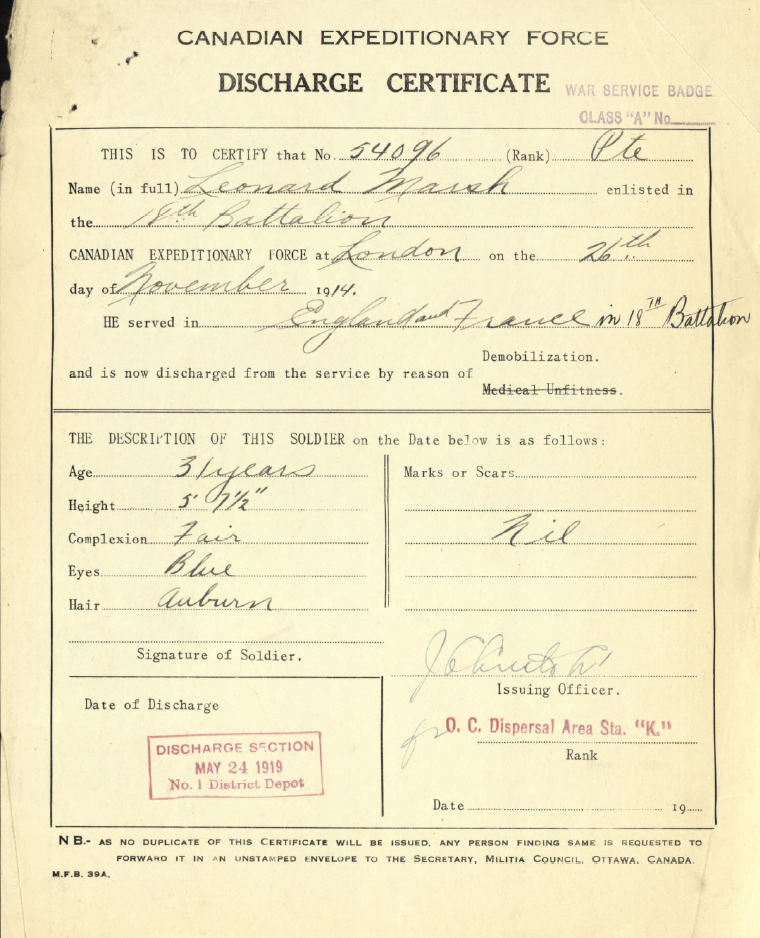 CANADIAN EXPEDITIONARY FORCE
DISCHARGE CERTIFICATE
WAR SERVICE BADGE
CLASS "A" No
THIS IS TO CERTIFY that No. 54096 (Rank) Pte
Name (in full) Leonard Marsh enlisted in
the 18th Battalion
CANADIAN EXPEDITIONARY FORCE at London on the 26th
day of November 1914.
HE served in England and France in 18TH Battalion
Demobilization.
and is now discharged from the service by reason of
Medical Unfitness.
THE DESCRIPTION OF THIS SOLDIER on the Date below is as follows:
Age 31 years
Height 5' 7½"
Complexion Fair
Eyes Blue
Hair Auburn
Signature of Soldier.
Marks or Scars
Nil
Issuing Officer.
for O. C. Dispersal Area Sta. "K."
Rank
Date 19
Date of Discharge
DISCHARGE SECTION
MAY 24 1919
No. 1 District Depot
NB.- AS NO DUPLICATE OF THIS CERTIFICATE WILL BE ISSUED, ANY PERSON FINDING SAME IS REQUESTED TO
FORWARD IT IN AN UNSTAMPED ENVELOPE TO THE SECRETARY, MILITIA COUNCIL, OTTAWA, CANADA.
M.F.B. 39A.